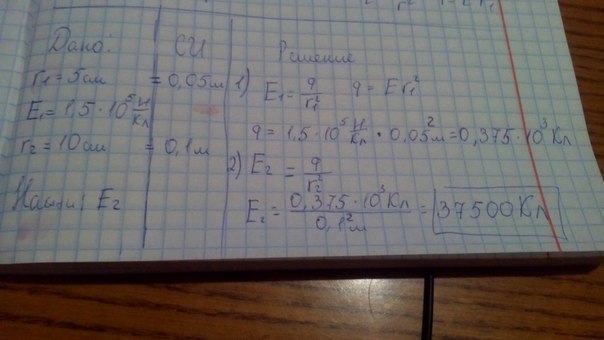 Дано:
r₁=5см
E₁=1,5·10⁵ Н/Кл
r₂=10см
Найти: E₂
СИ
=0,05м
=0,1м
Решение
1) E₁=q/r₁² q=Er₁²
q=1,5·10⁵ Н/Кл·0,05²м=0,375·10³Кл
2) E₂=q/r₂²
E₂=0,375·10³Кл/0,1²м=37500Кл